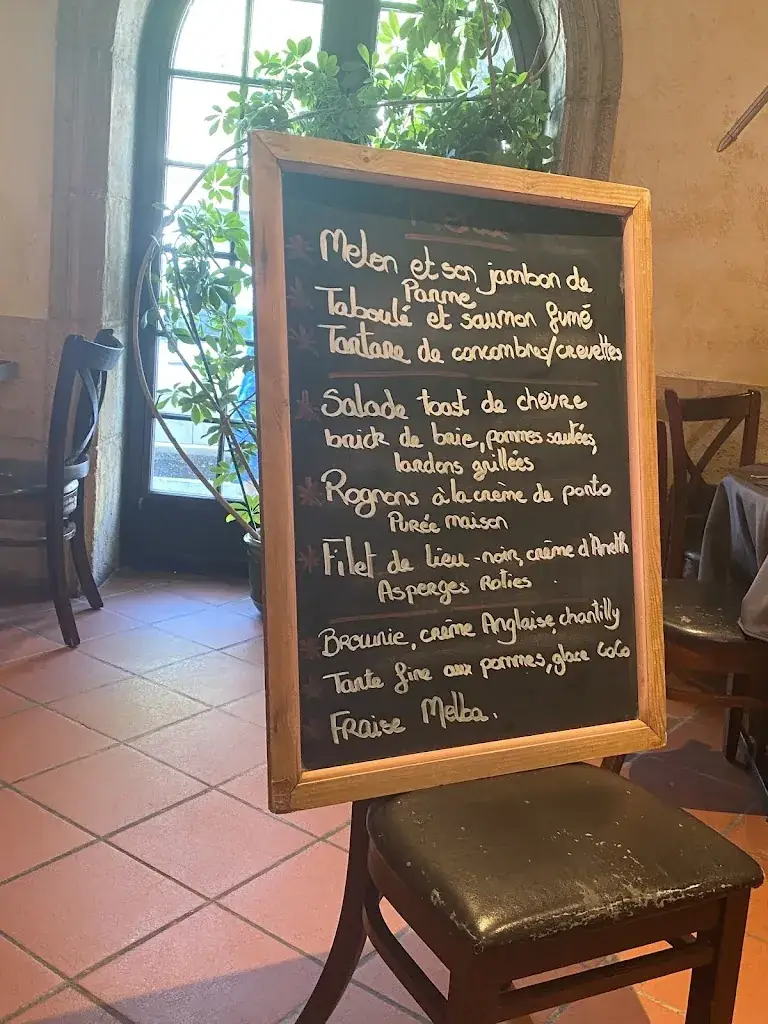 Menu
Melon et son jambon de
Parme
Taboulé et saumon fumé
Tartare de concombres/crevettes
Salade toast de chèvre
brick de brie, pommes sautées,
lardons grillées
Rognons à la crème de porto
Purée maison
Filet de lieu-noir, crème d'Aneth
Asperges Roties
Brownie, crème Anglaise, chantilly
Tarte fine aux pommes, glace coco
Fraise Melba.